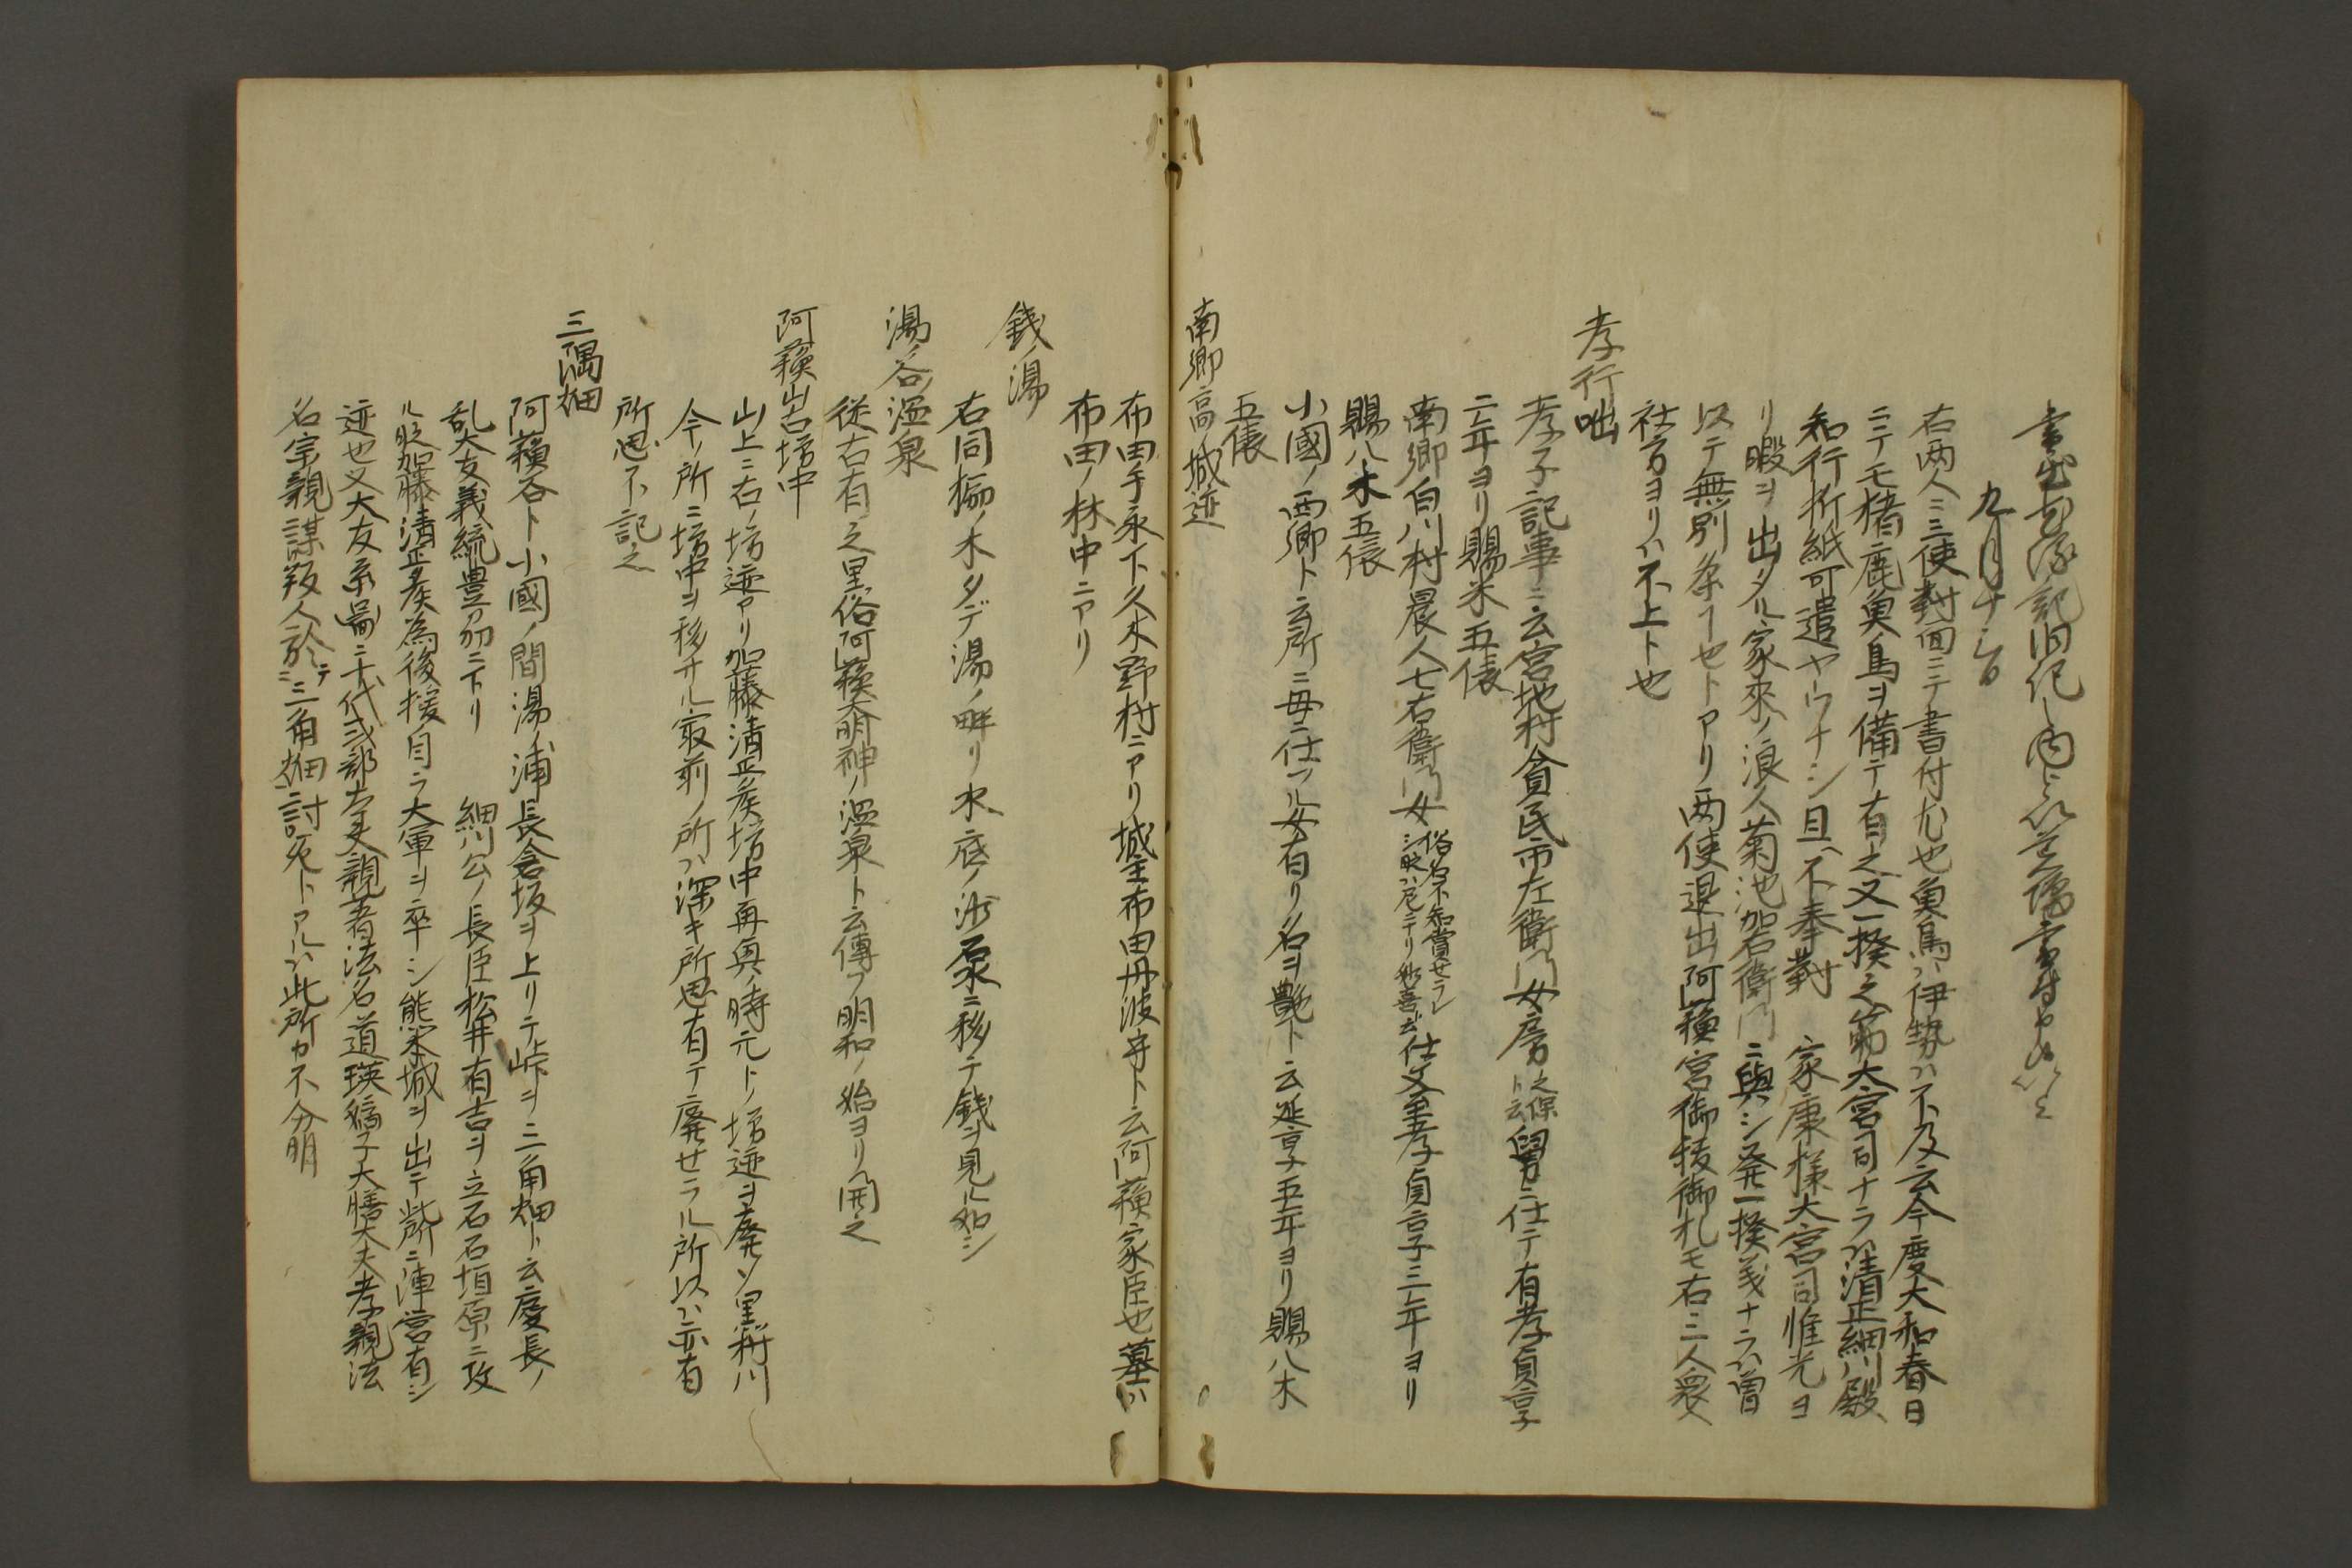 九月十六日
右両人ニ三使對面ニテ書付尤也魚鳥ハ伊勢ハ不及云今度大和春日
ニテモ猪鹿魚鳥ヲ備テ有之又一揆之節大宮司ナラハ清正細川殿
知行折紙可遣ヤウナシ且不奉對　家康様大宮司惟光ヨ
リ暇ヲ出タル家來ノ浪人菊池加右衛門ニ與シ発一揆義ナラハ曽
以テ無別条ヿ也トアリ両使退出阿蘓宮御祓御札モ右三人衆
社方ヨリハ不上ト也
孝行咄
孝子記事ニ云宮地村貧民市左衛門女房之保ト云舅ニ仕テ有孝貞享
二年ヨリ賜米五俵
南郷白川村農人七右衛門女俗名不知賞せラレシ時ハ尼ニテリ仕父至孝貞享三年ヨリ
賜八木五俵
小國ノ西郷ト云所ニ母ニ仕フル女有リ名ヲ艶ト云延享五年ヨリ賜八木
五俵
南郷高城迹
布田手永下久木野村ニアリ城主布田丹波守ト云阿蘓家臣也墓ハ
布田ノ林中ニアリ
銭ノ湯
右同楡ノ木タデ湯ノ畔リ水底ノ沙石泉ニ移テ銭ヲ見ル如シ
湯ノ谷温泉
従右有之里俗阿蘓大明神ノ温泉ト云傳フ明和ノ始ヨリ開之
阿蘓山古坊中
山上ニ右ノ坊迹アリ加藤清正矦坊中再興ノ時元トノ坊迹ヲ廃ソ黒川村
今ノ所ニ坊中ヲ移サル最前ノ所ハ深キ所思有テ廃せラル所以ハ亦有
所思不記之
三隅畑
阿蘓谷ト小國ノ間湯ノ浦長倉坂ヲ上リテ峠ヲ三角畑ト云慶長ノ
乱大友義統豊刕ニ下リ　細川公ノ長臣松井有吉ヲ立石石垣原ニ攻
ル時加藤清正矦為後援自ラ大軍ヲ卒シ熊本城ヲ出テ此所ニ陣営有シ
迹也又大友系圖ニ十代式部大夫親著法名道瑛嫡子大膳大夫孝親法
名宗親謀叛人於テ三角畑ニ討死トアルハ此所カ不分明